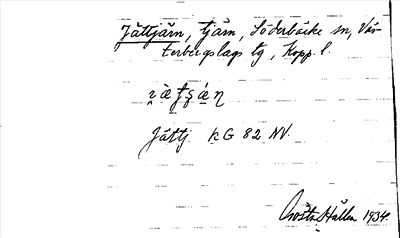 Jättjärn, tjärn, Söderbärke sn, Väs-
terbergslags tg, Kopp. l.
Jättj. kG 82 NV.
Hållen 1934.